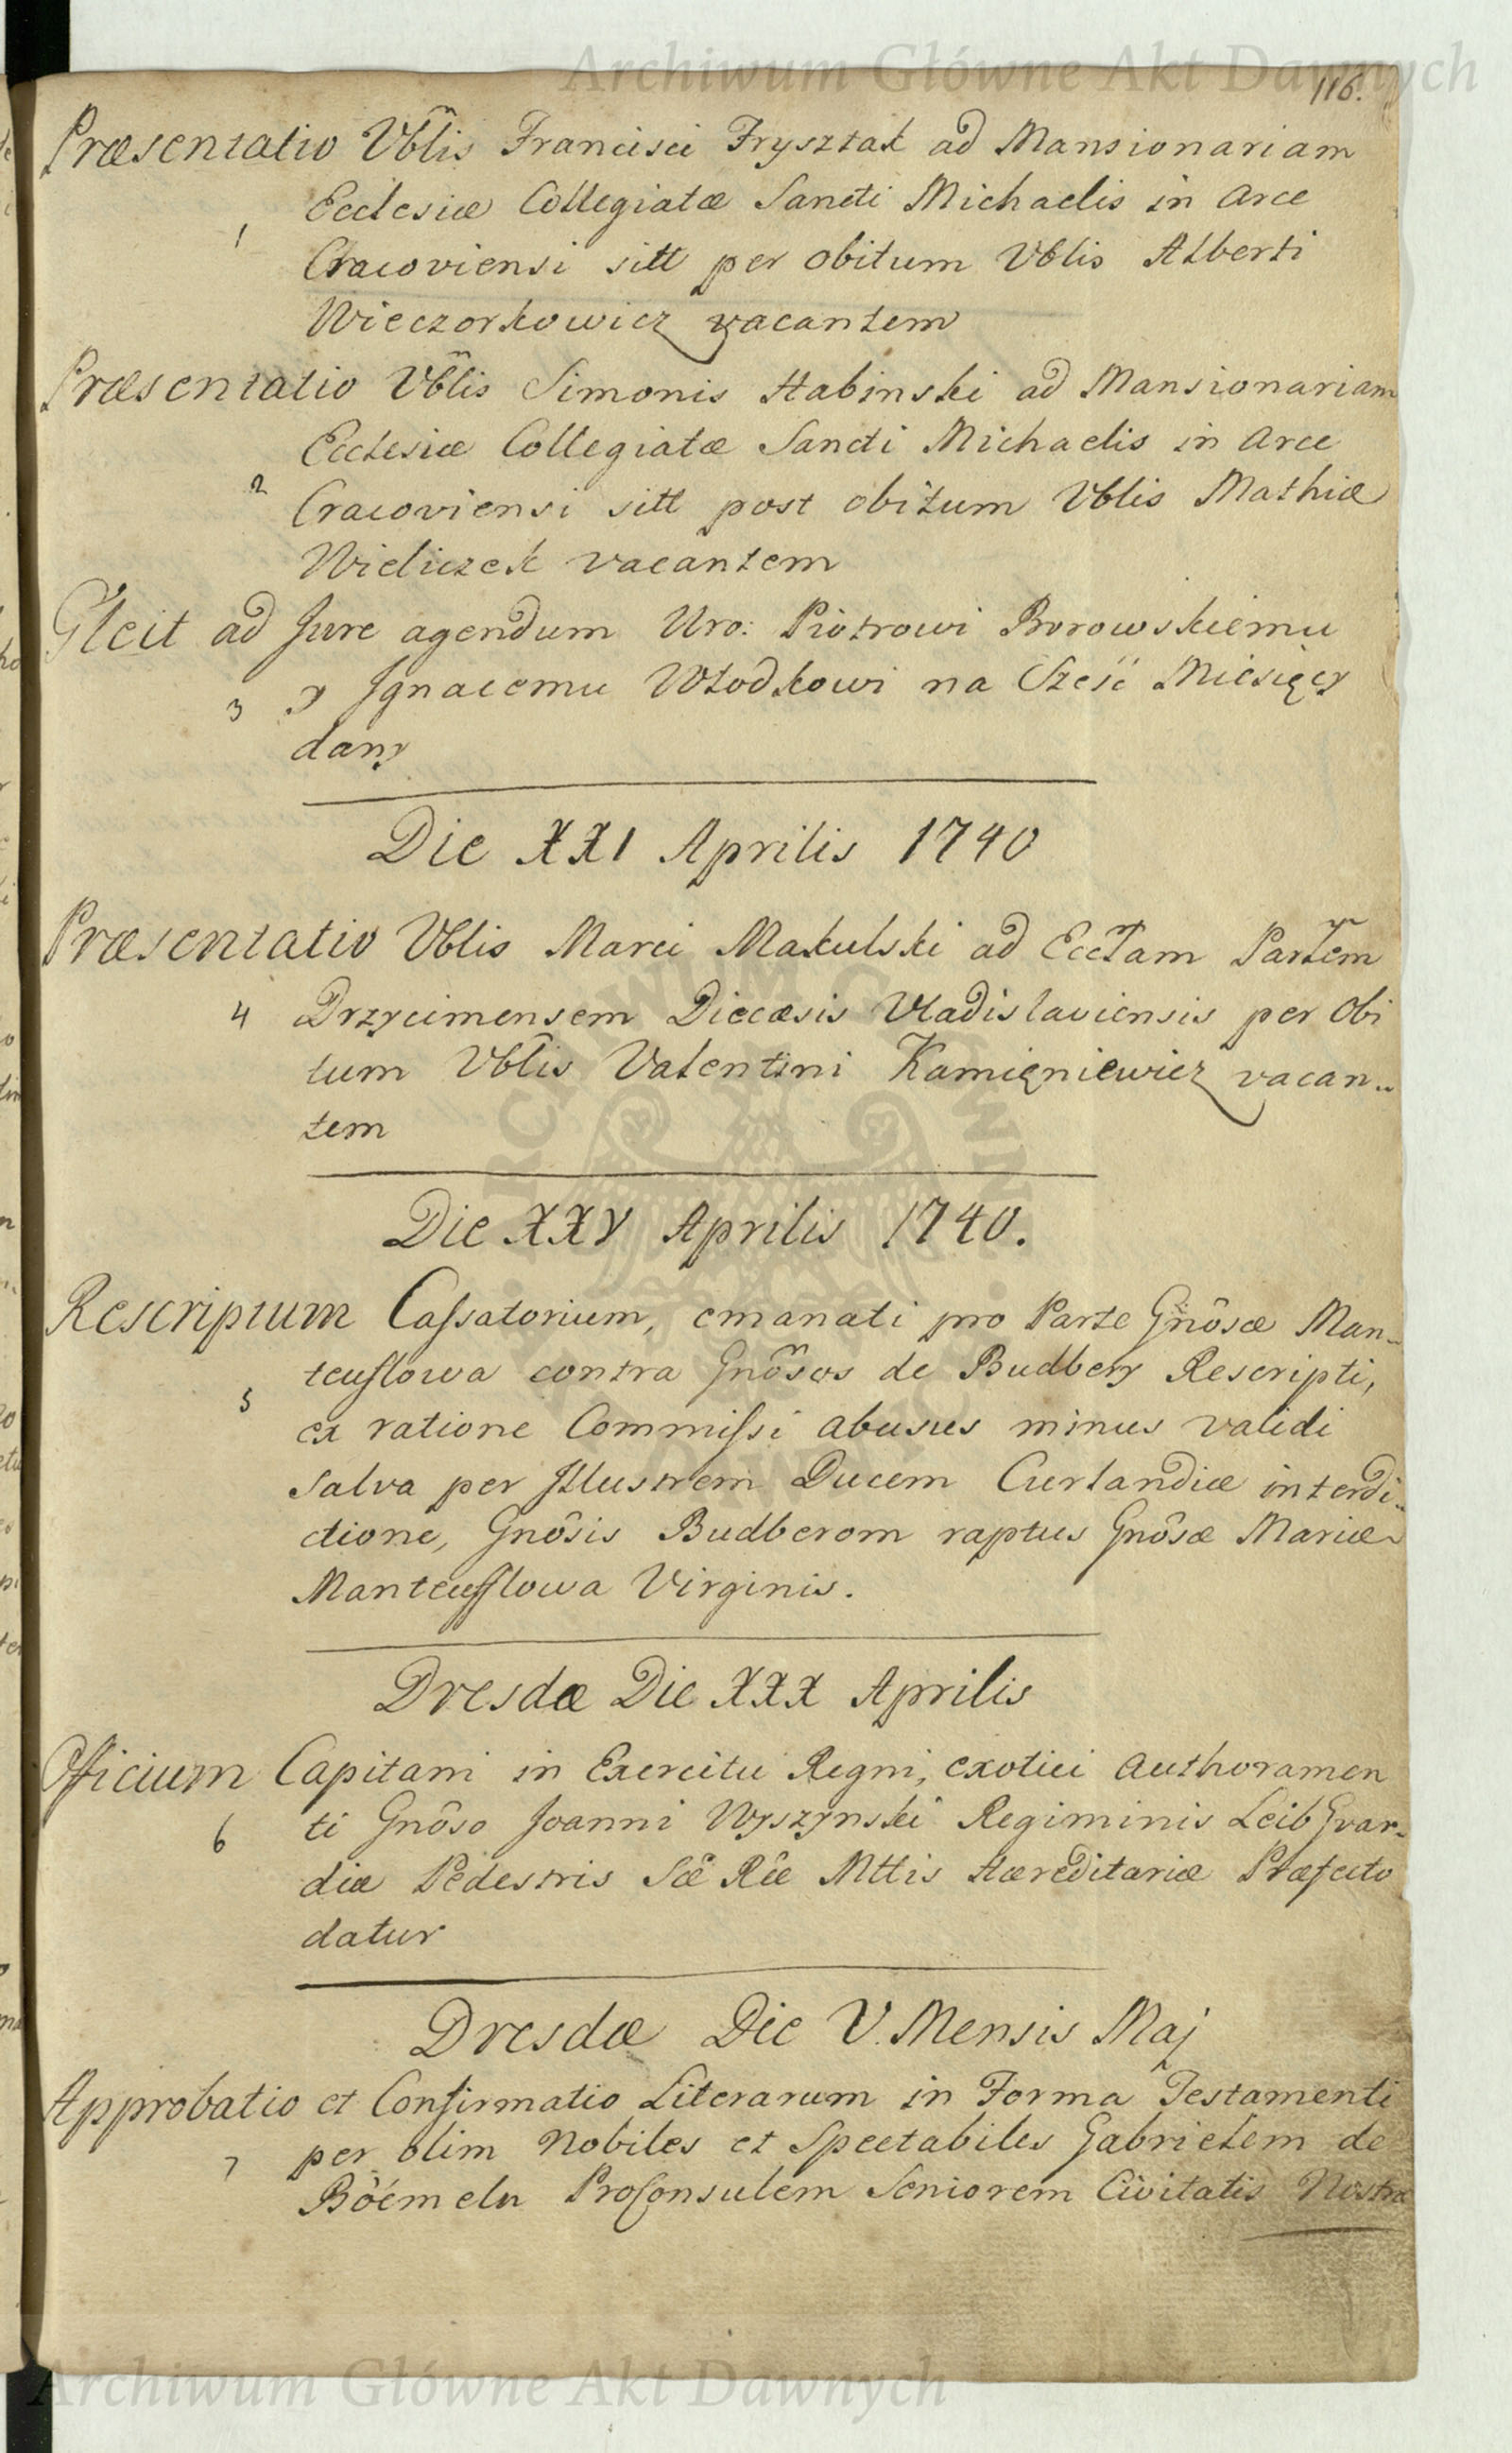 Archiwum Główne Akt Dawnych
116.
Præsentatio Vblis Francisci Frysztak ad Mansionariam
Ecclesiæ Collegiatæ Sancti Michaelis in Arce
1
Cracoviensi sitt per obitum Vblis Alberti
Wieczorkowicz vacantem
Præsentatio Vblis Simonis Habinski ad Mansionariam
Ecclesiæ Collegiatæ Sancti Michaelis in Arce
2
Cracoviensi sitt post obitum Vblis Mathiæ
Wieliczek vacantem
Gleit ad Jure agendum Uro: Piotrowi Borowskiemu
3 y Jgnacemu Włodkowi na Sześć Miesięcy
dany
Die XXI Aprilis 1740
Præsentatio Vblis Marci Makulski ad Ecclam Partem
4 Drzycimensem Diecæsis Vladislaviensis per Obi
tum Vblis Valentini Kamięniewicz vacan..
tem
Die XXV Aprilis 1740.
Rescriptum Cassatorium, emanati pro Parte Gnôsæ Man..
teuflowa contra Gnôsos de Budberg Rescripti,
5
ex ratione Commissi abusus minus validi
Salva per Jllustrem Ducem Curlandiæ interdi..
ctione, Gnôsis Budberom raptus Gnôsæ Mariæ
Manteufflowa Virginis.
Dresdæ Die XXX Aprilis
Officium Capitani in Exercitu Regni, exotici Authoramen
6 ti Gnôso Joanni Wyszynski Regiminis Leib Gvar..
diæ Pedestris Sæ Ræ Mttis Hæreditariæ Præfecto
datur
Dresdæ Die V. Mensis Maj
Approbatio et Confirmatio Literarum in Forma Testamenti
7 per olim Nobiles et Spectabiles Gabrielem de
Böemeln Proconsulem Seniorem Civitatis Nostræ
Archiwum Główne Akt Dawnych